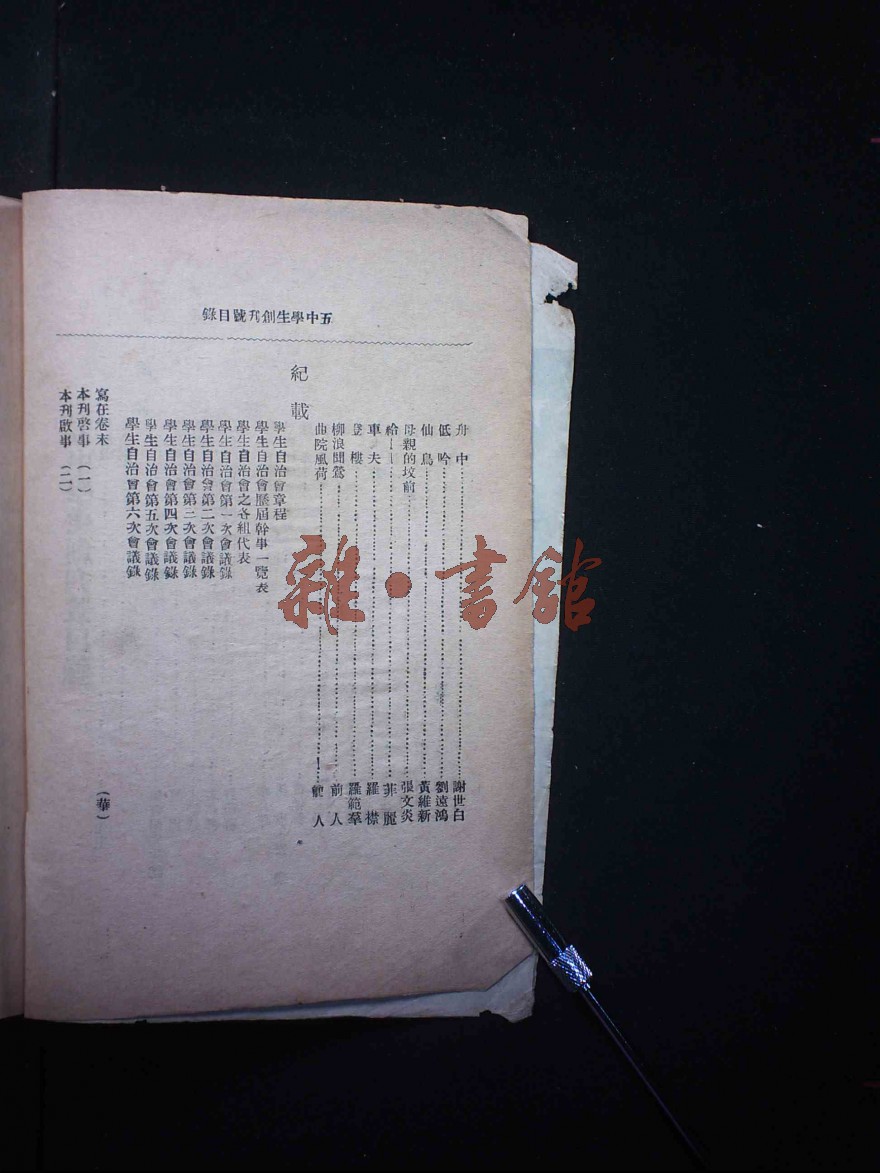 五中學生創刋號目錄
舟中…謝世白
低吟…劉遠鴻
仙鳥…黃維新
母親的坟前…張文炎
給——…菲麗
車夫…羅襟
登樓…羅範羣
柳浪聞鶯…前人
曲院風荷…前人
紀載
學生自治會章程
學生自治會歷屆幹事一覽表
學生自治會之各組代表
學生自治會第一次會議錄
學生自治會第二次會議錄
學生自治會第三次會議錄
學生自治會第四次會議錄
學生自治會第五次會議錄
學生自治會第六次會議錄
寫在卷末(華)
本刊啓事(一)
本刊啟事(二)
雜·書館